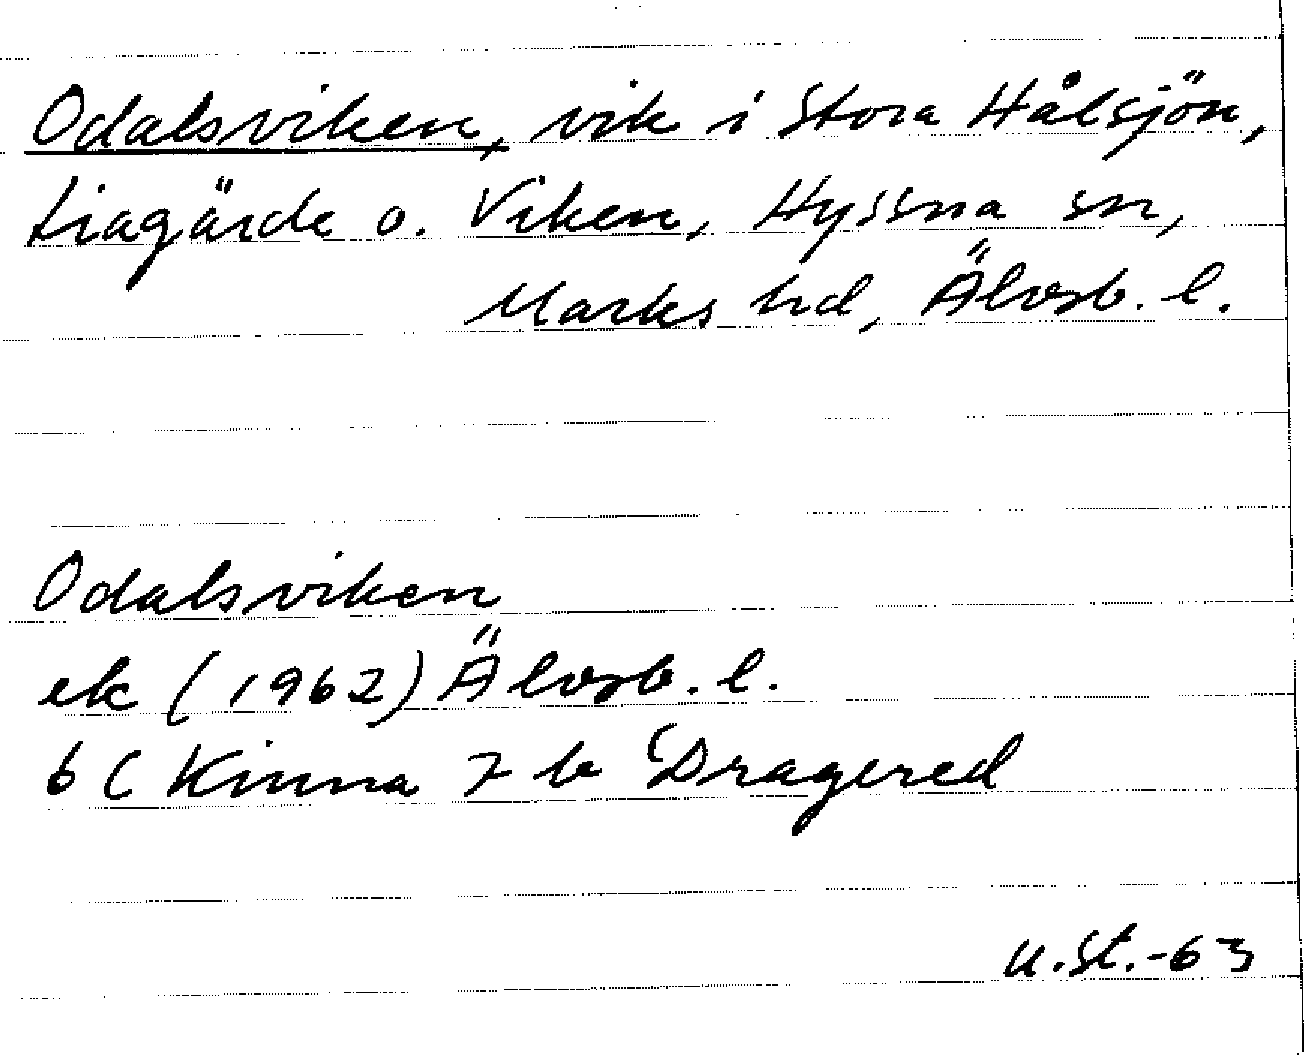 Odalsviken, vik i Stora Hålsjön,
Liagärde o. Viken, Hyssna sn,
Marks hd, Älvsb. l.
Odalsviken
ek (1962) Älvsb. l.
6 C Kinna 7 b Dragered
u.St.-63